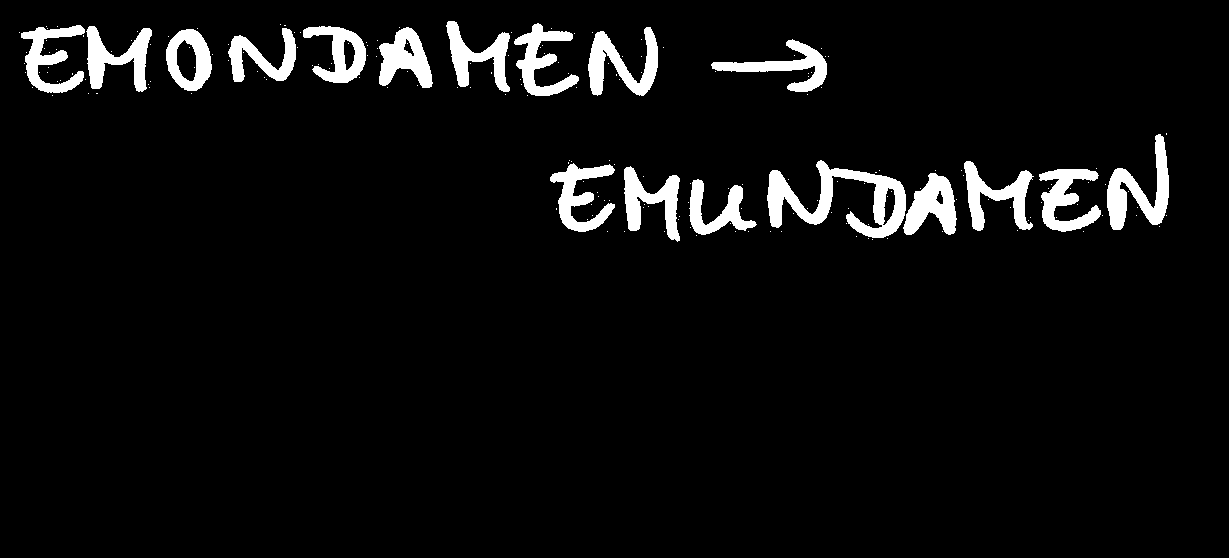 EMONDAMEN →
EMUNDAMEN